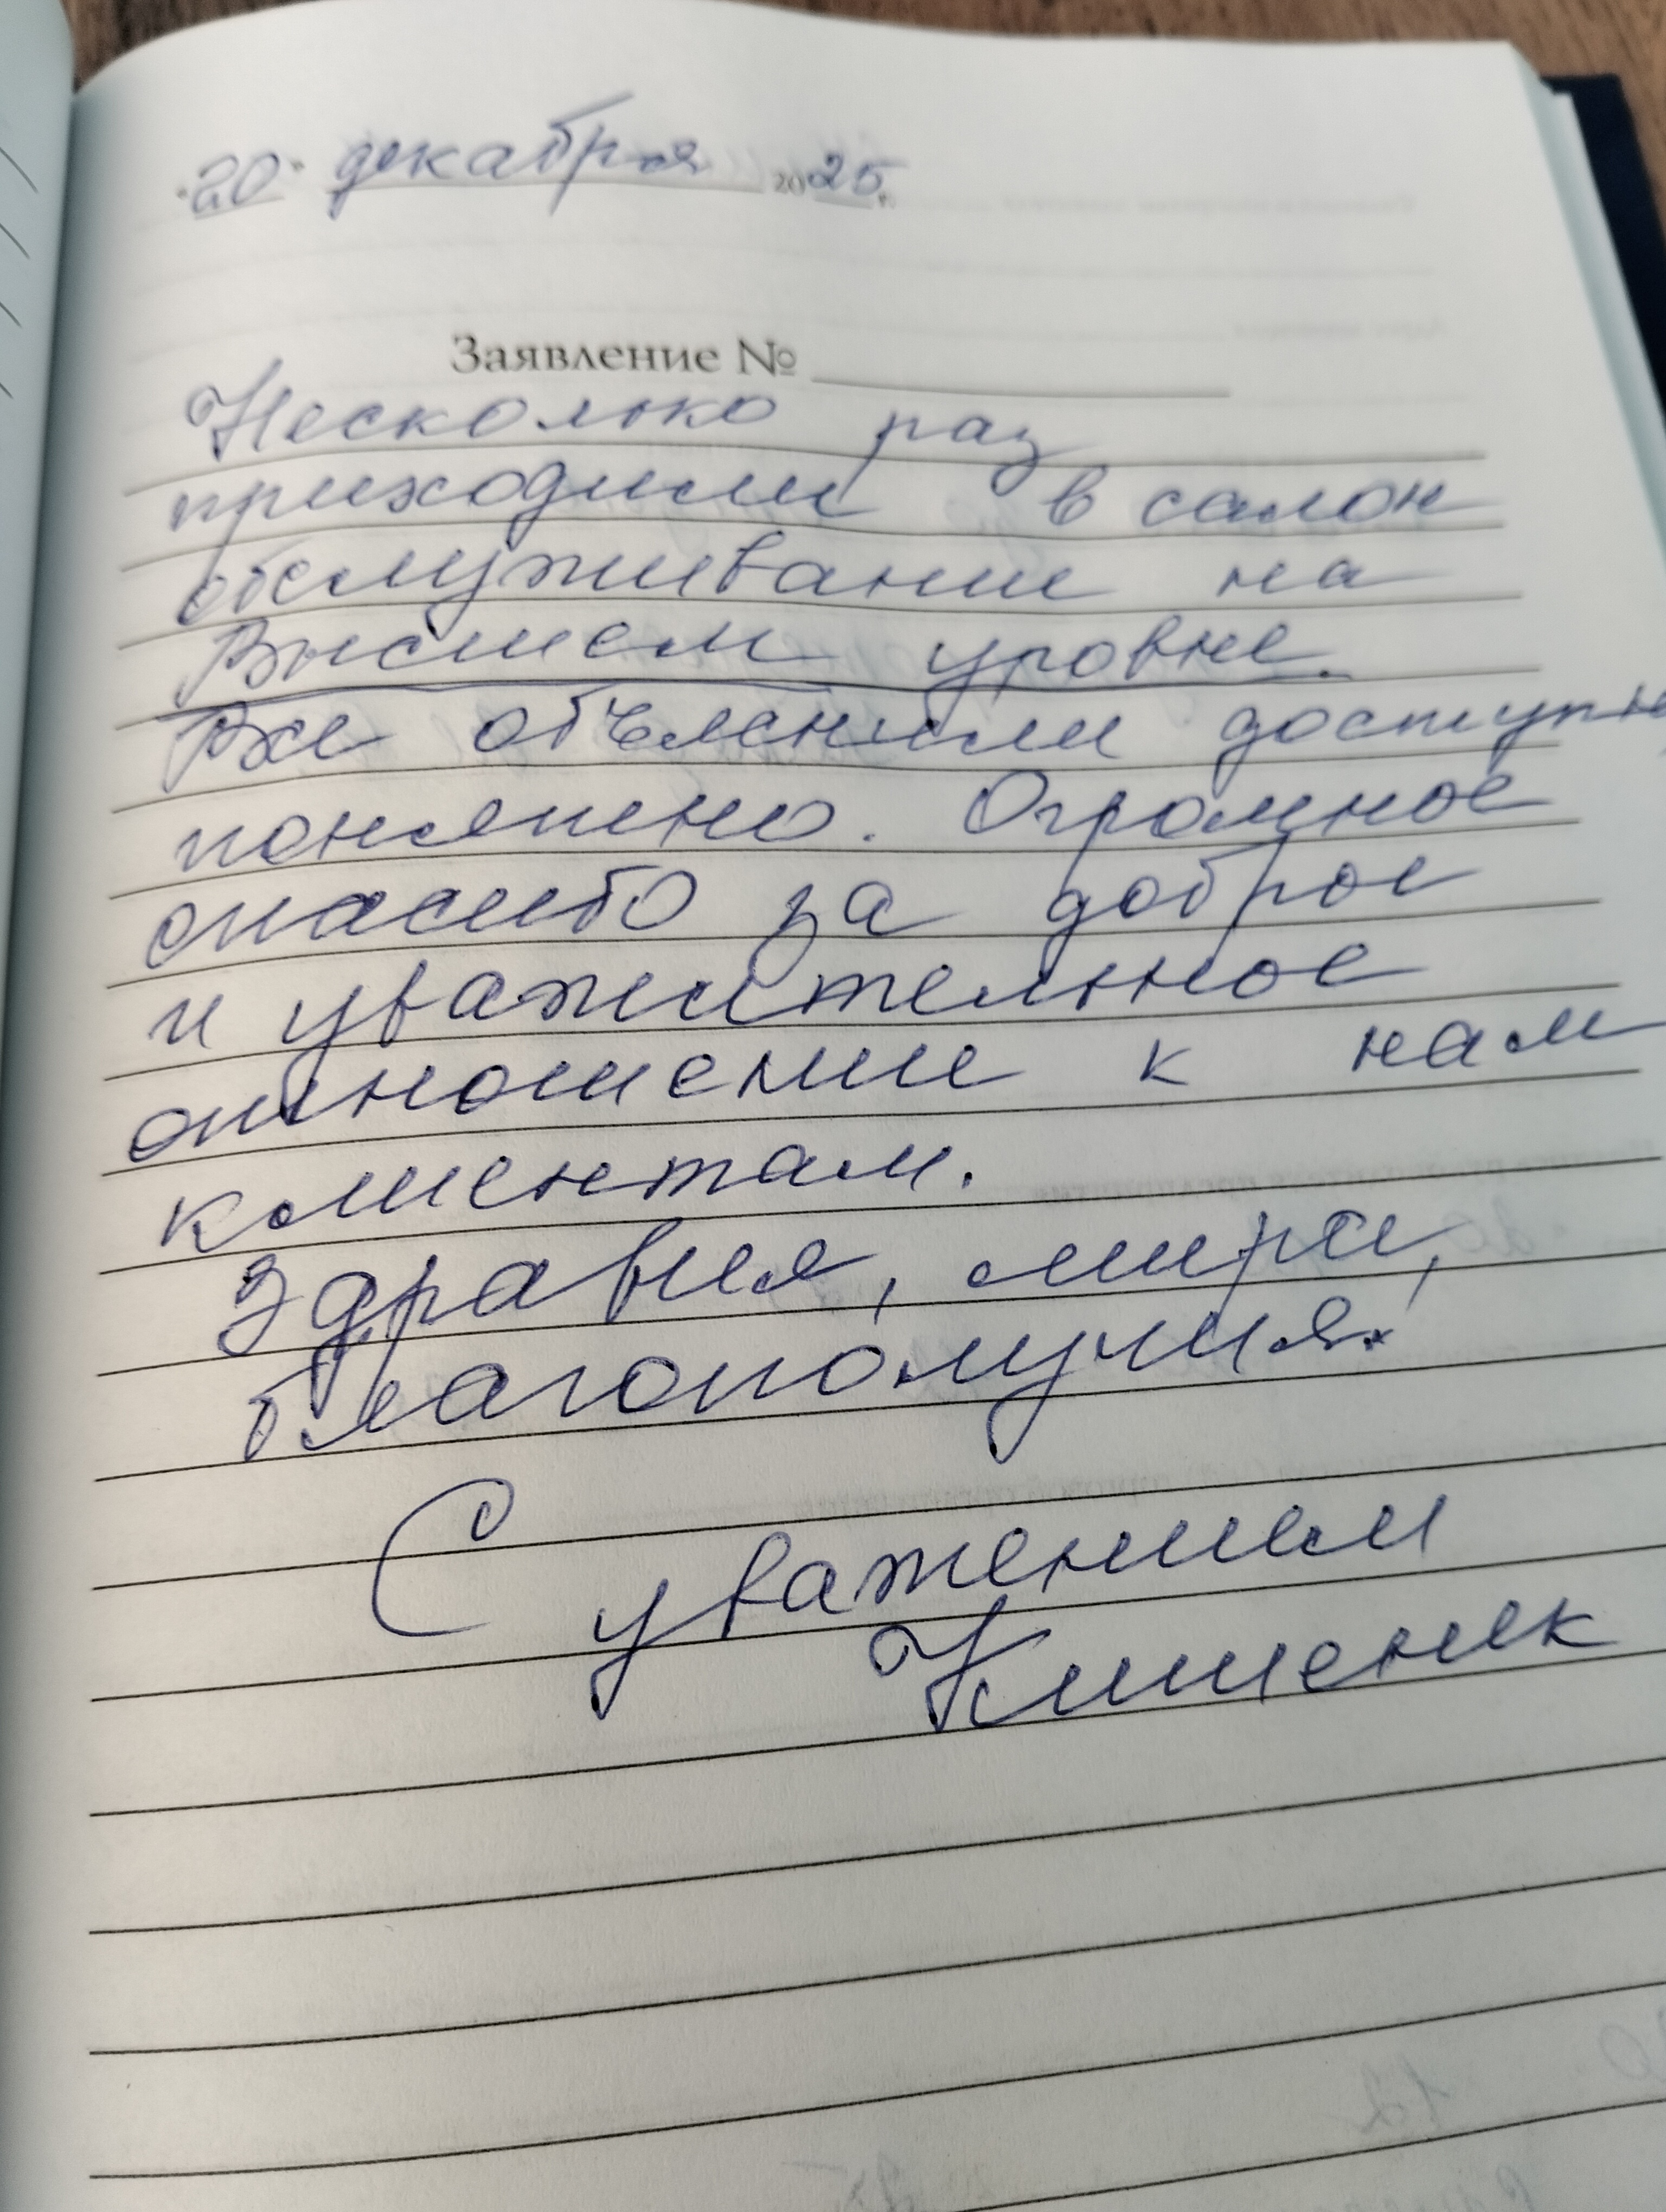 "20" декабря 2025 г.
Заявление №
Несколько раз
приходили в салон
обслуживание на
Высшем уровне.
Все объяснили доступно
понятно. Огромное
спасибо за доброе
и уважительное
отношение к нам
клиентам.
Здравия, мира,
благополучия.
С уважением